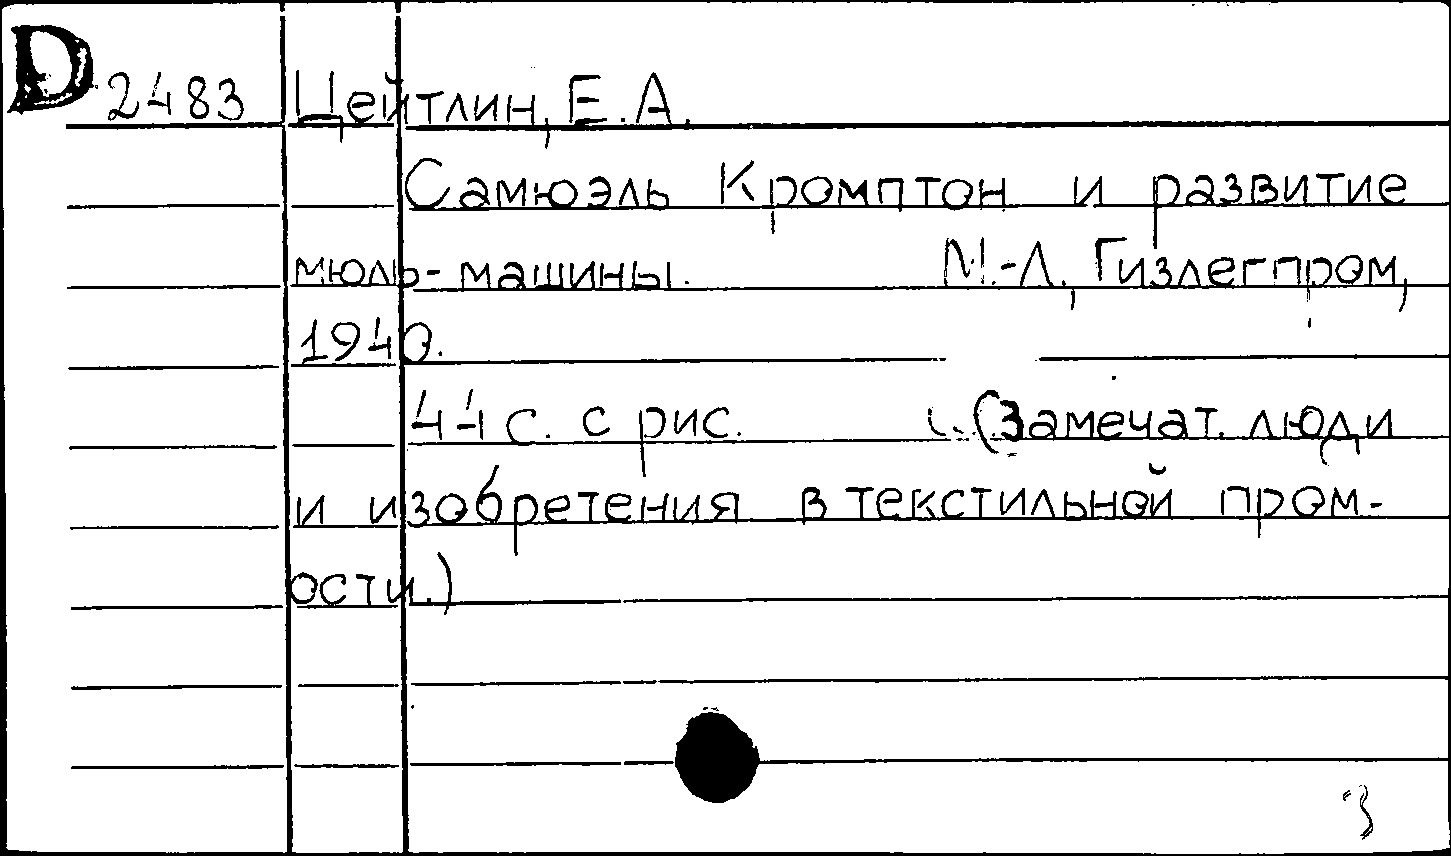 D 2483 Цейтлин, Е.А.
Самюэль Кромптон и развитие
мюль-машины. М.-Л., Гизлегпром,
1940.
44 с. с рис. (Замечат. люди
и изобретения в текстильной пром-
ости.)
З